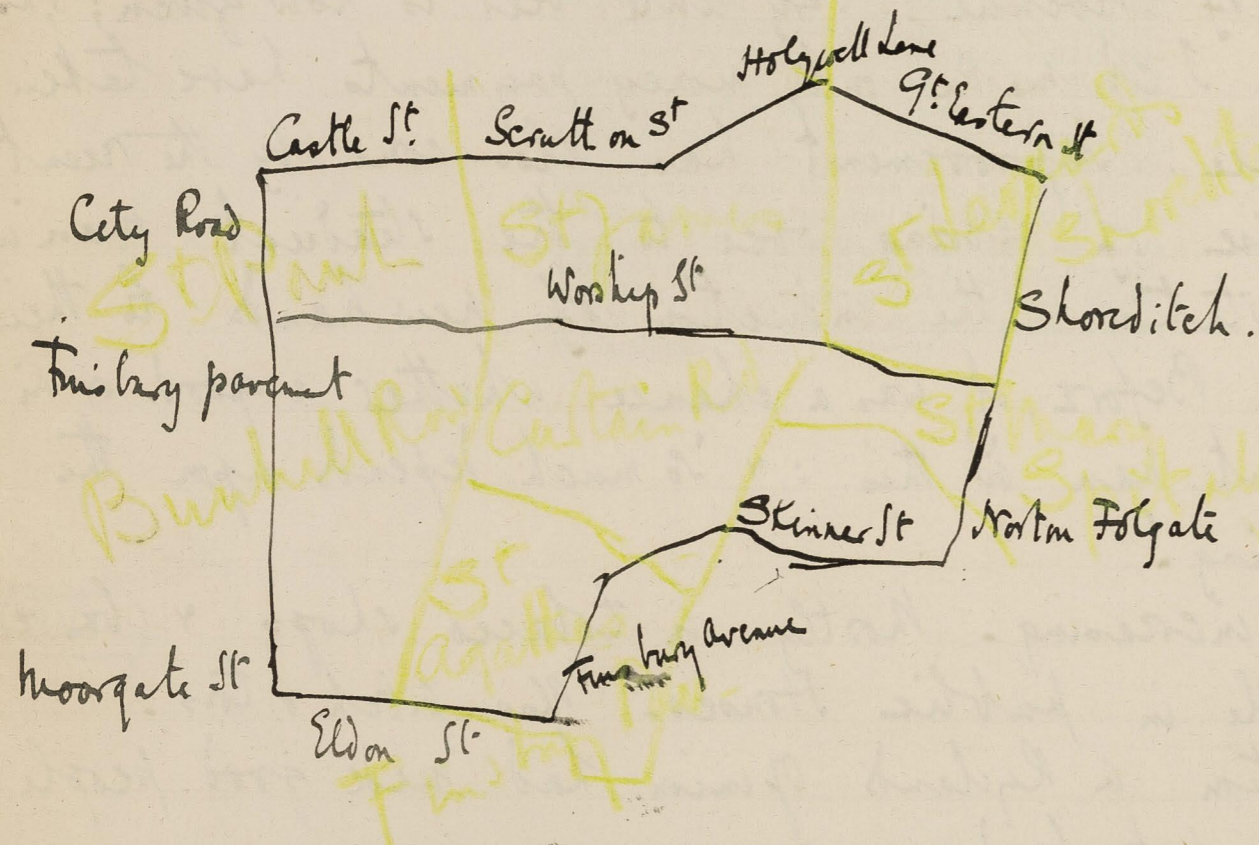 Holywell Lane
Gt. Eastern St
Castle St. Scrutton St
City Road
St Paul
St James
St Leonards
Shoreditch
Worship St
Shoreditch.
Finsbury pavement
Bunhill Row
Curtain Rd
St Mary
Skinner St
Norton Folgate
St
Agathas
Finsbury Avenue
Moorgate St
Eldon St
Finsbury